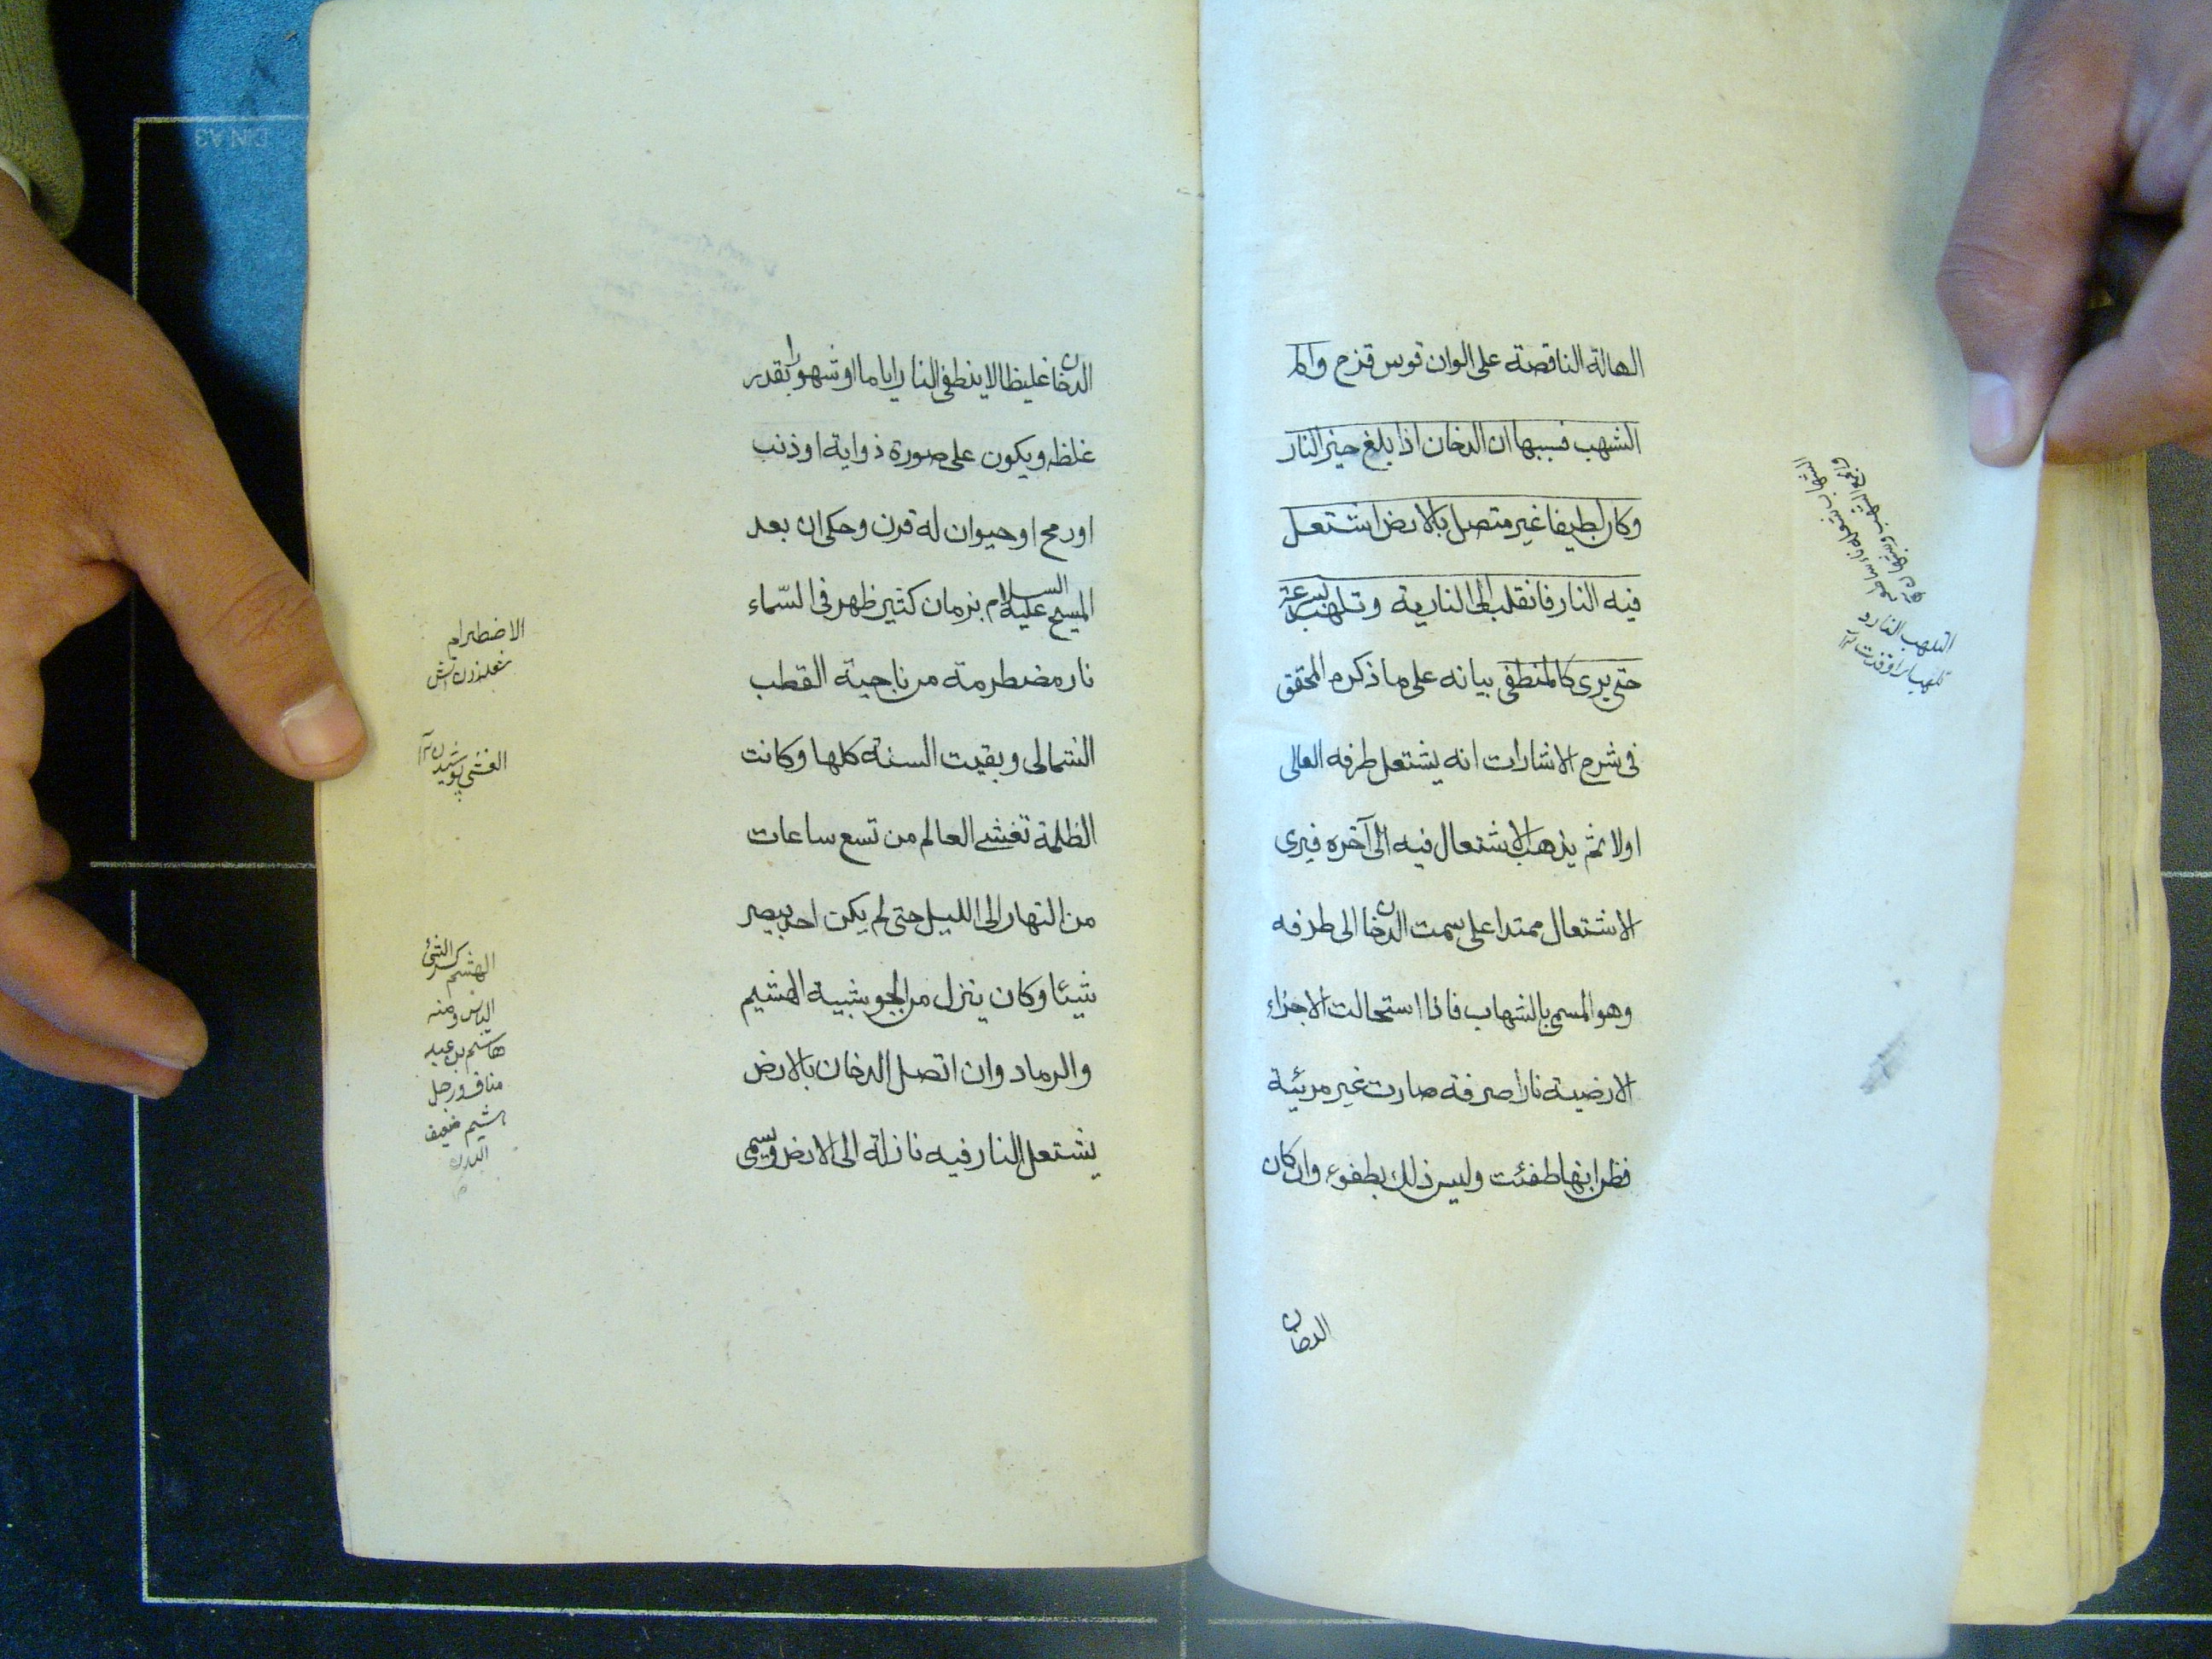 الهالة الناقصة على الوان قوس قزح واما
الشهب فسببها ان الدخان اذا بلغ حيز النار
وكان لطيفا غير متصل بالارض اشتعل
فيه النار فانقلب الى النارية وتلهب بسرعة
حتى يرى كالمنطفى بيانه على ما ذكره المحقق
فى شرح الاشارات انه يشتعل طرفه العالى
اولا ثم يذهب الاشتعال فيه الى آخره فيرى
الاشتعال ممتدا على سمت الدخان الى طرفه
وهو المسمى بالشهاب فاذا استحالت الاجزاء
الارضية نارا صرفة صارت غير مرئية
فظن انها طفئت وليس ذلك بطفوء وان كان
الدخان
التلهب النار
الدخان غليظا لا ينطفى النار اياما او شهورا بقدر
غلظه ويكون على صورة ذوابة او ذنب
او رمح او حيوان له قرن وحكى ان بعد
المسيح عليه السلام بزمان كثير ظهر فى السّماء
نار مضطرمة من ناحية القطب
الشمالى وبقيت السنة كلها وكانت
الظلمة تغشى العالم من تسع ساعات
من النهار الى الليل حتى لم يكن احد يبصر
شيئا وكان ينزل من الجو شبيه الهشيم
والرماد وان اتصل الدخان بالارض
يشتعل النار فيه نازلة الى الارض ويسمى
الاضطرام
الغشى پوشيدن
الهشم كسر الشئ
اليابس ومنه
هاشم بن عبد
مناف ورجل
هشيم ضعيف
البدن